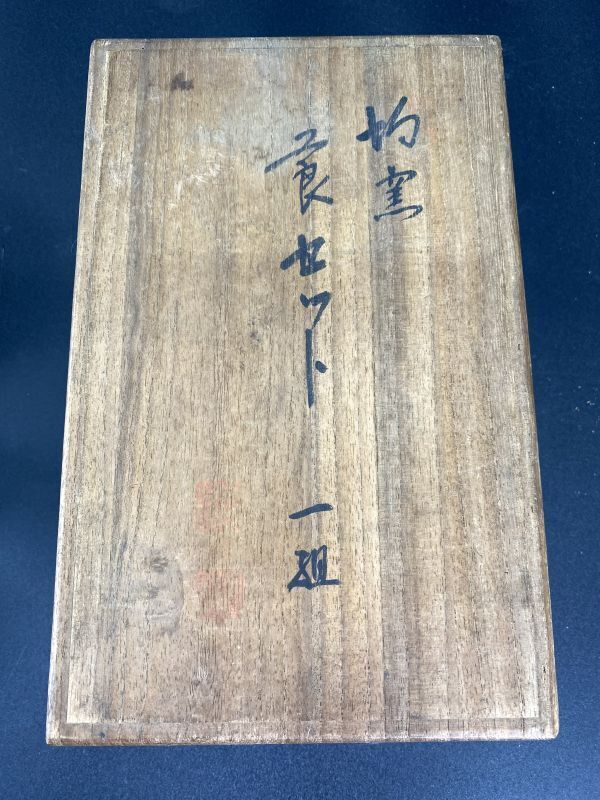 均窯
莨セット
一組